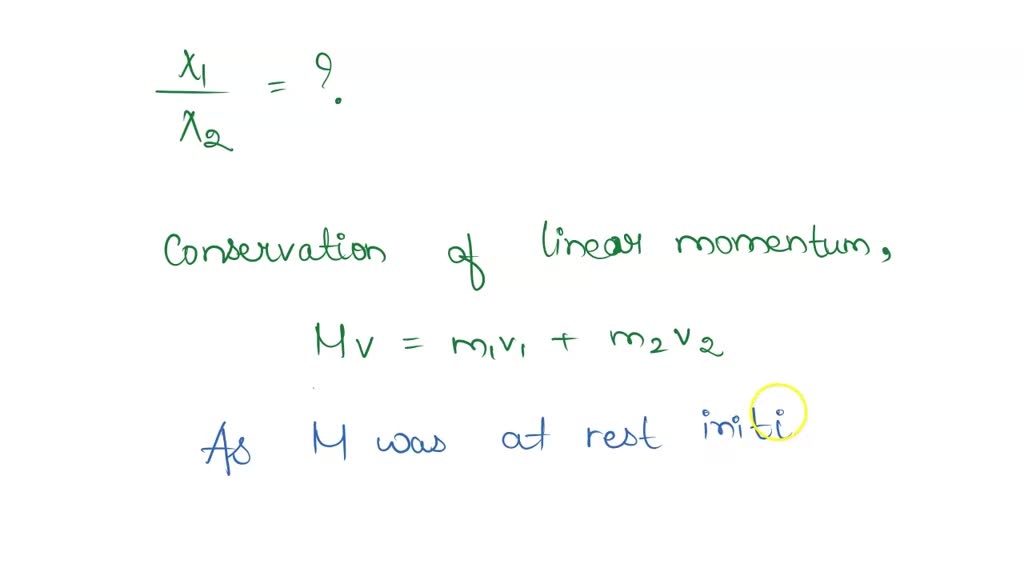 λ1
λ2 = ?.
Conservation of linear momentum,
Mv = m1v1 + m2v2
As M was at rest initi